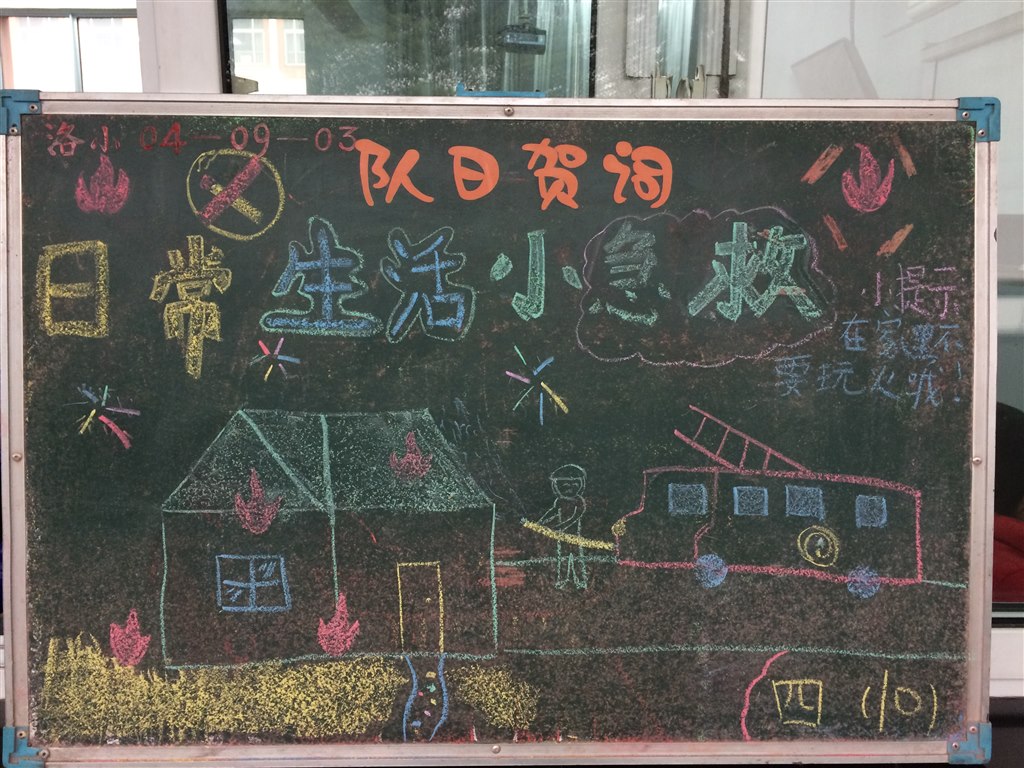 洛小 04-09-03
队日贺词
日常生活小急救
小提示
在家里不
要玩火哦！
四 (10)